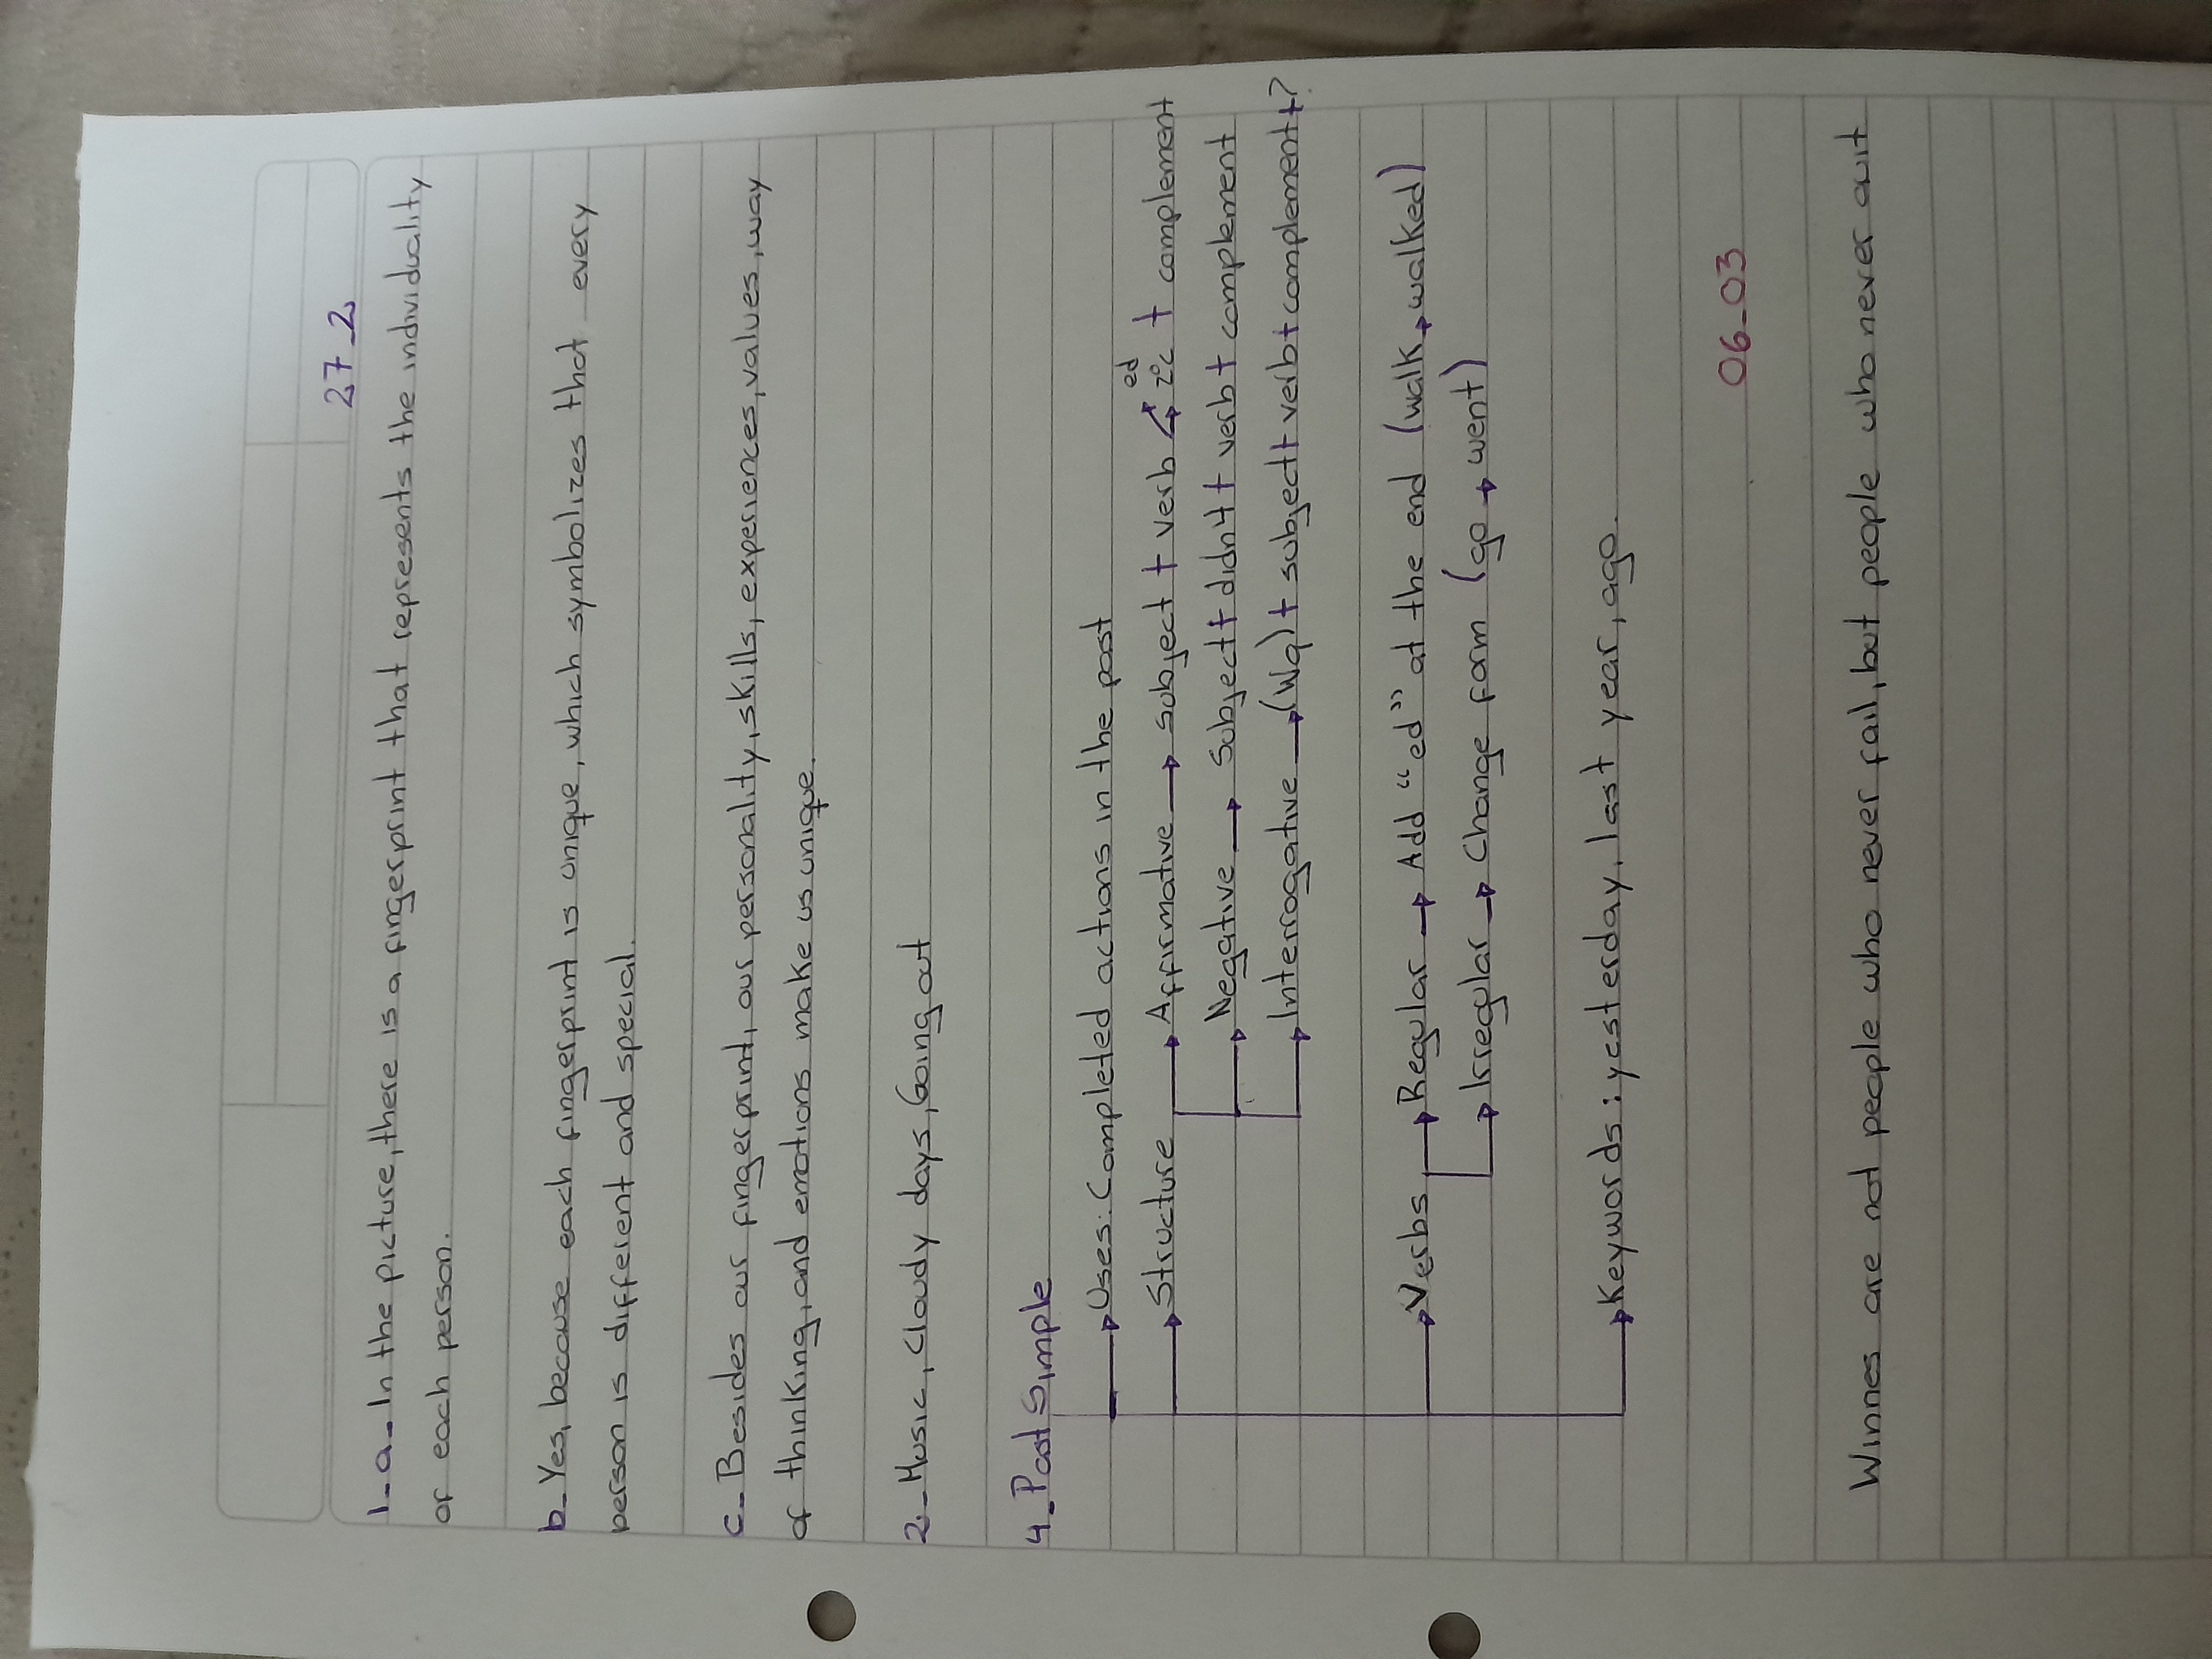 27_2
1_a_In the picture, there is a fingerprint that represents the individuality
of each person.
b_Yes, because each fingerprint is unique, which symbolizes that every
person is different and special.
c_Besides our fingerprint, our personality, skills, experiences, values, way
of thinking, and emotions make us unique.
2_Music, Cloudy days, Going out
4_Past Simple
→Uses: Completed actions in the past
→Structure → Affirmative → subject + verb ed 2ºc + complement
→ Negative → Subject + didn't + verb + complement
→ Interrogative → (Wq) + subject + verb + complement + ?
→Verbs → Regular → Add "ed" at the end (walk → walked)
→ Irregular → Change form (go → went)
→Keywords: yesterday, last year, ago.
06_03
Winnes are not people who never fail, but people who never quit